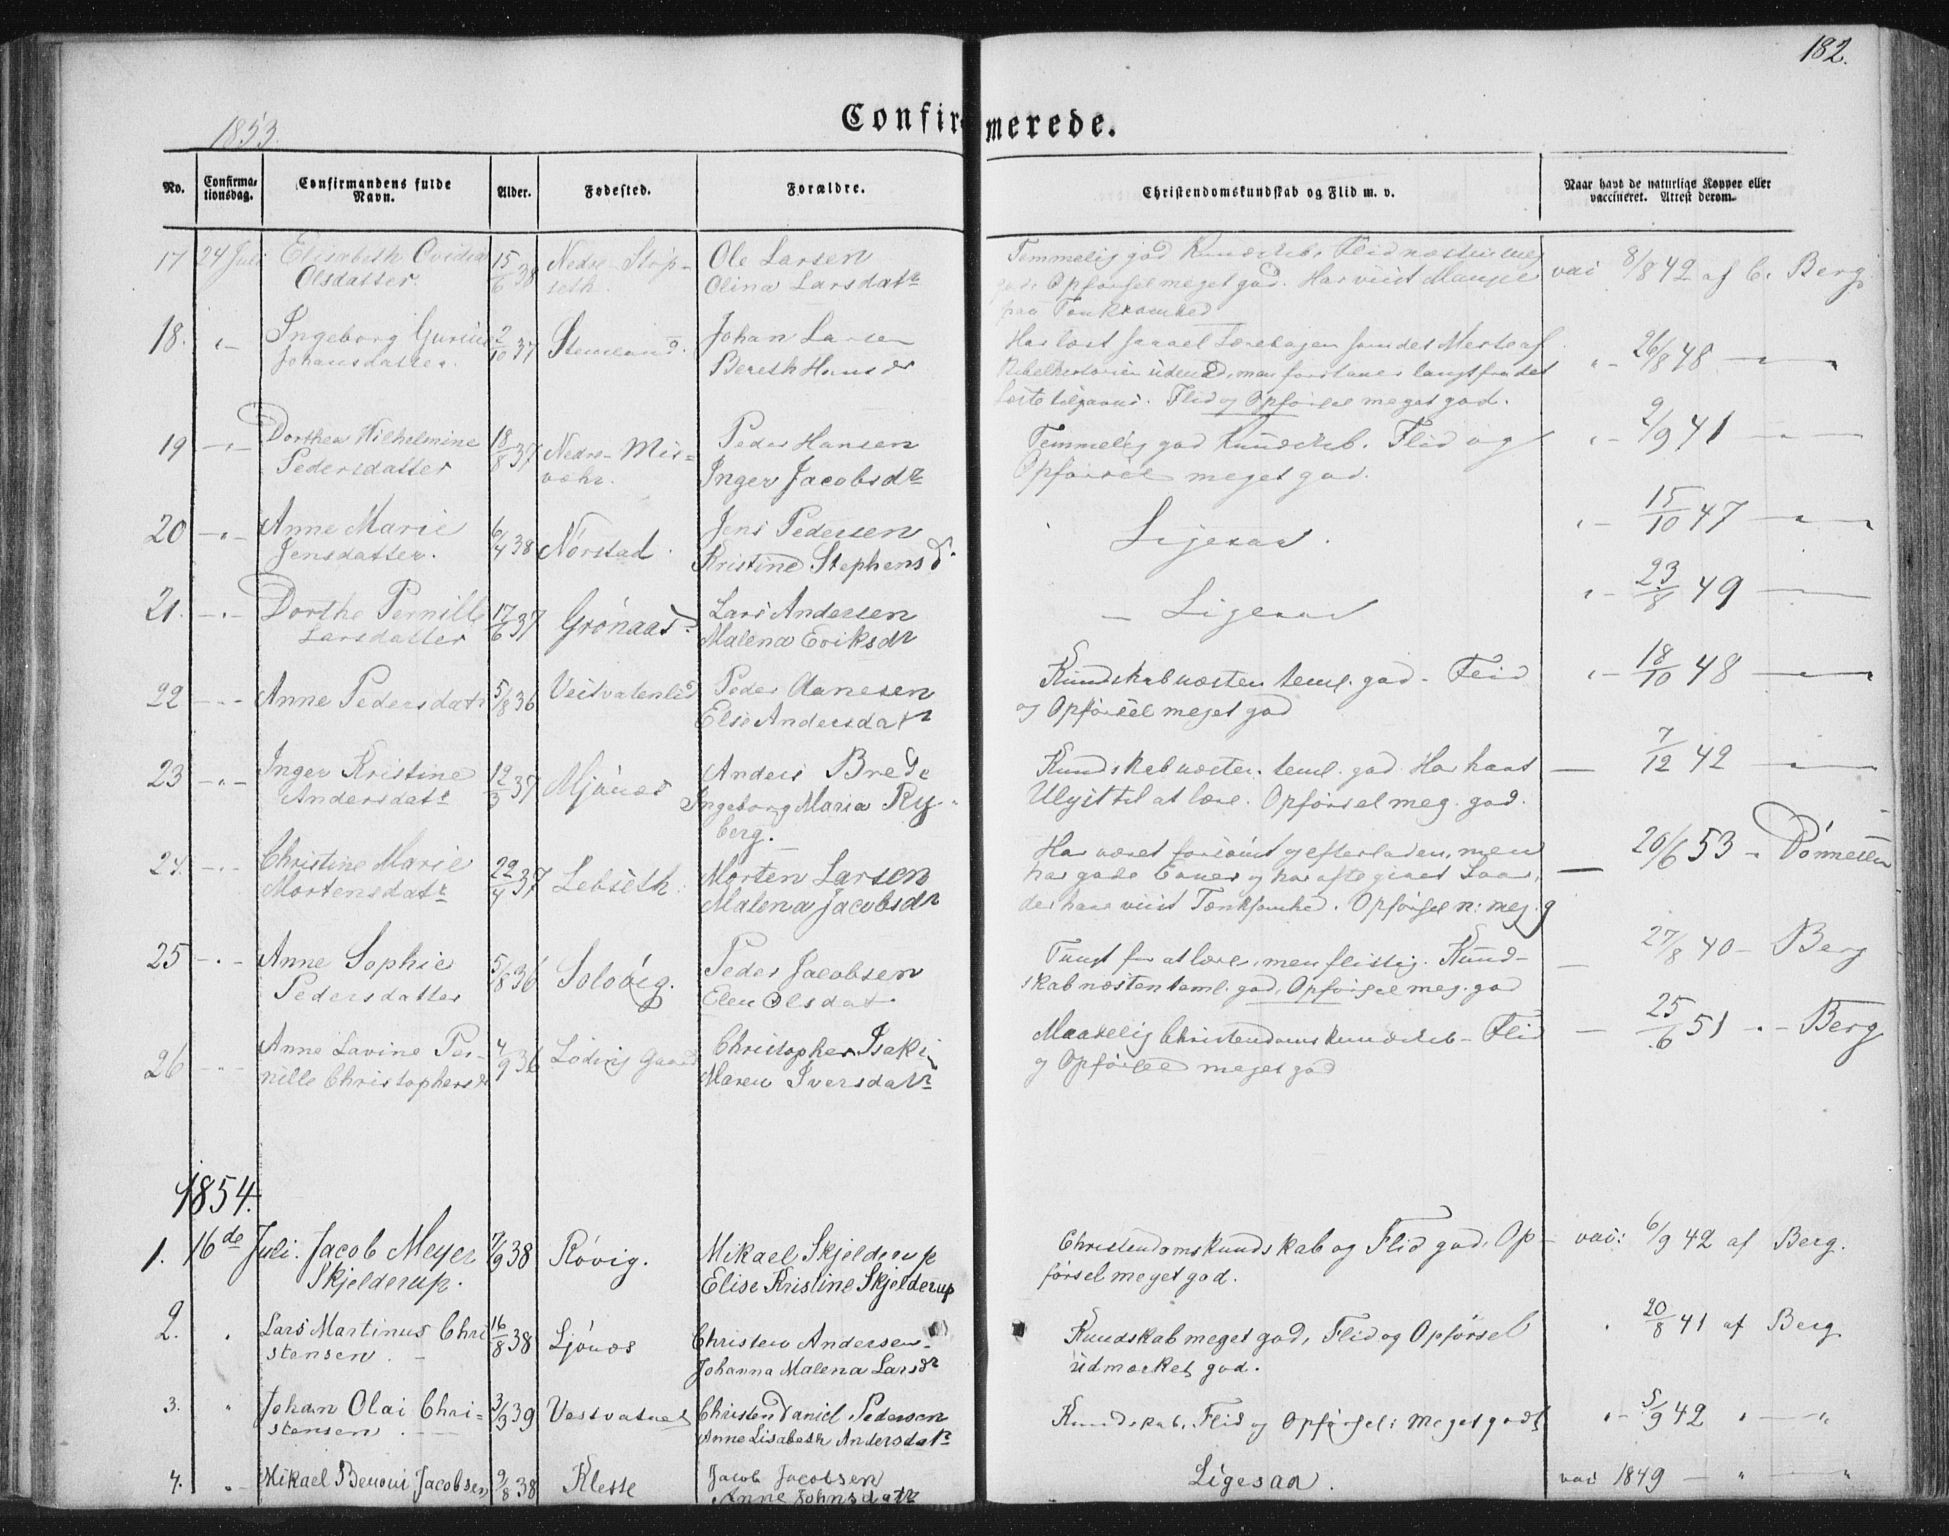 182.
Confirmerede.
1853
No. Confirma-tionsdag. Confirmandens fulde Navn. Alder. Fødested. Forældre. Christendomskundskab og Flid m. v. Naar havt de naturlige Kopper eller vaccineret. Attest derom.
17 24 Juli Elisabeth Ovidia 15/6 38 Nedre Stöp- Ole Larsen Temmelig god Kundskab, Flid næsten meg vac 8/8 42 af C. Berg
Olsdatter. seth. Olina Larsdatr god. Opförsel meget god. Har viist Mangel
paa Tænksomhed
18. "- Ingeborg Gurine 2/10 37 Stemland. Johan Larsen Har læst saavel Lærebogen som det Meste af "- 26/8 48 - " -
Johansdatter. Bereth Hansdr Bibelhistorien udenad, men forstaaer langtfra det
læste tilgavns. Flid og Opförsel meget god.
19 -"- Dorthea Wilhelmine 18/8 37 Nedre Mis- Peder Hansen Temmelig god Kundskab. Flid og "- 2/9 41 - " -
Pedersdatter Inger Jacobsdr Opförsel meget god.
20 -"- Anne Marie 6/4 38 Nörstad. Jens Pedersen Ligesaa. "- 15/10 47 - " -
Jensdatter. Kristine Stephensd.
21. -"- Dorthe Pernille 17/6 37 Grönaas Lars Andersen - Ligesaa "- 23/8 49 -
Larsdatter Malena Eriksdr
22 -"- Anne Pedersdatr 5/8 36 Peder Aanesen Kundskab næsten teml. god - Flid "- 18/10 48 - " -
Else Andersdatr og Opförsel meget god
23 -"- Inger Kristine 12/3 37 Mjönes Anders Brede Kundskab næsten teml. god. Har havt - 7/12 42 - " -
Andersdatr Ingeborg Maria Ry- Ulyst til at lære. Opförsel meg. god.
berg.
24. -"- Christine Marie 22/4 37 Lebseth. Morten Larsen Har været forsömt og efterladen, men - 20/6 53 - Dönnesen
Mortensdatr Malena Jacobsdr har gode Evner og har ofte givet Svar,
der have viist Tænksomhed. Opförsel n: meg. g
25 -"- Anne Sophie 5/8 36 Solöig. Peder Jacobsen Tungt for at lære, men flittig. Kund- - 27/8 40 - Berg
Pedersdatter Elen Olsdat. skab næsten teml. god, Opförsel meg. god
26 -"- Anne Lavine Per- 4/9 36 Löding Gaard Christopher Isaks Maadelig Christendomskundskab - Flid - 25/6 51 "- Berg
nille Christophersd Maren Iversdatr og Opförsel meget god
1854.
1. 16de Juli. Jacob Meyer 7/9 38 Rövig. Mikael Skjelderup Christendomskundskab og Flid god, Op- vac: 6/9 42 af Berg.
Skjelderup. Elise Kristine Skjelderup försel meget god.
2. " Lars Martinus Chri 16/8 38 Ljönes Christen Andersen Kundskab meget god, Flid og Opförsel " 20/8 41 af Berg
stensen. - Johanna Malena Larsdr udmærket god.
3. " Johan Olai Chri- 3/3 39 Vestvatnet Christen Daniel Pedersen Kundskab, Flid og Opförsel: Meget godt "- 5/9 42 " - "
stensen. - Anne Lisabeth Andersdatr
4. "- Mikael Benoni Jacobsen 9/8 38 Klette Jacob Jacobsen Ligesaa. vac 1849 - " - "
Anne Johnsdatr